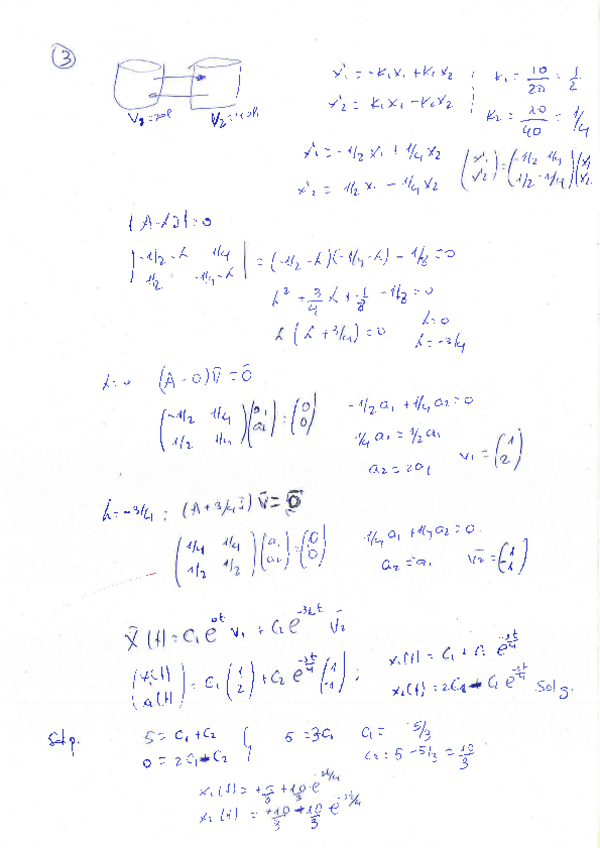 3
V₁=20l V₂=40l
x'₁ = -K₁x₁ + K₁x₂ ; K₁ = 10/20 = 1/2
x'₂ = K₁x₁ - K₂x₂ K₂ = 10/40 = 1/4
x'₁ = -1/2 x₁ + 1/4 x₂
x'₂ = 1/2 x₁ - 1/4 x₂
(x'₁ x'₂) = (-1/2 1/4 1/2 -1/4)(x₁ x₂
|A-λI|=0
|-1/2-λ 1/4
1/2 -1/4-λ| = (-1/2-λ)(-1/4-λ) - 1/8 = 0
λ² + 3/4 λ + 1/8 - 1/8 = 0
λ(λ+3/4) = 0 λ=0
λ=-3/4
λ=0 (A-0)v̄ = 0̄
(-1/2 1/4
1/2 1/4)(a₁ a₂) = (0 0)
-1/2 a₁ + 1/4 a₂ = 0
1/4 a₁ = 1/2 a₁
a₂ = 2a₁ v₁ = (1 2)
λ=-3/4 ; (A+3/4 I) v̄ = 0̄
(1/4 1/4
1/2 1/2)(a₁ a₂) = (0 0)
1/4 a₁ + 1/4 a₂ = 0
a₂ = -a₁ v̄₂ = (1 -1)
X̄(t) = C₁e^0t v₁ + C₂e^-3/4t v̄₂
(x₁(t) x₂(t)) = C₁(1 2) + C₂ e^-3t/4 (1 -1) ;
x₁(t) = C₁ + C₂ e^-3t/4
x₂(t) = 2C₁ - C₂ e^-3t/4 Sol g.
Sol p. 5 = C₁ + C₂
0 = 2C₁ - C₂
5 = 3C₁ C₁ = 5/3
C₂ = 5 - 5/3 = 10/3
x₁(t) = +5/3 + 10/3 e^-3t/4
x₂(t) = +10/3 - 10/3 e^-3t/4